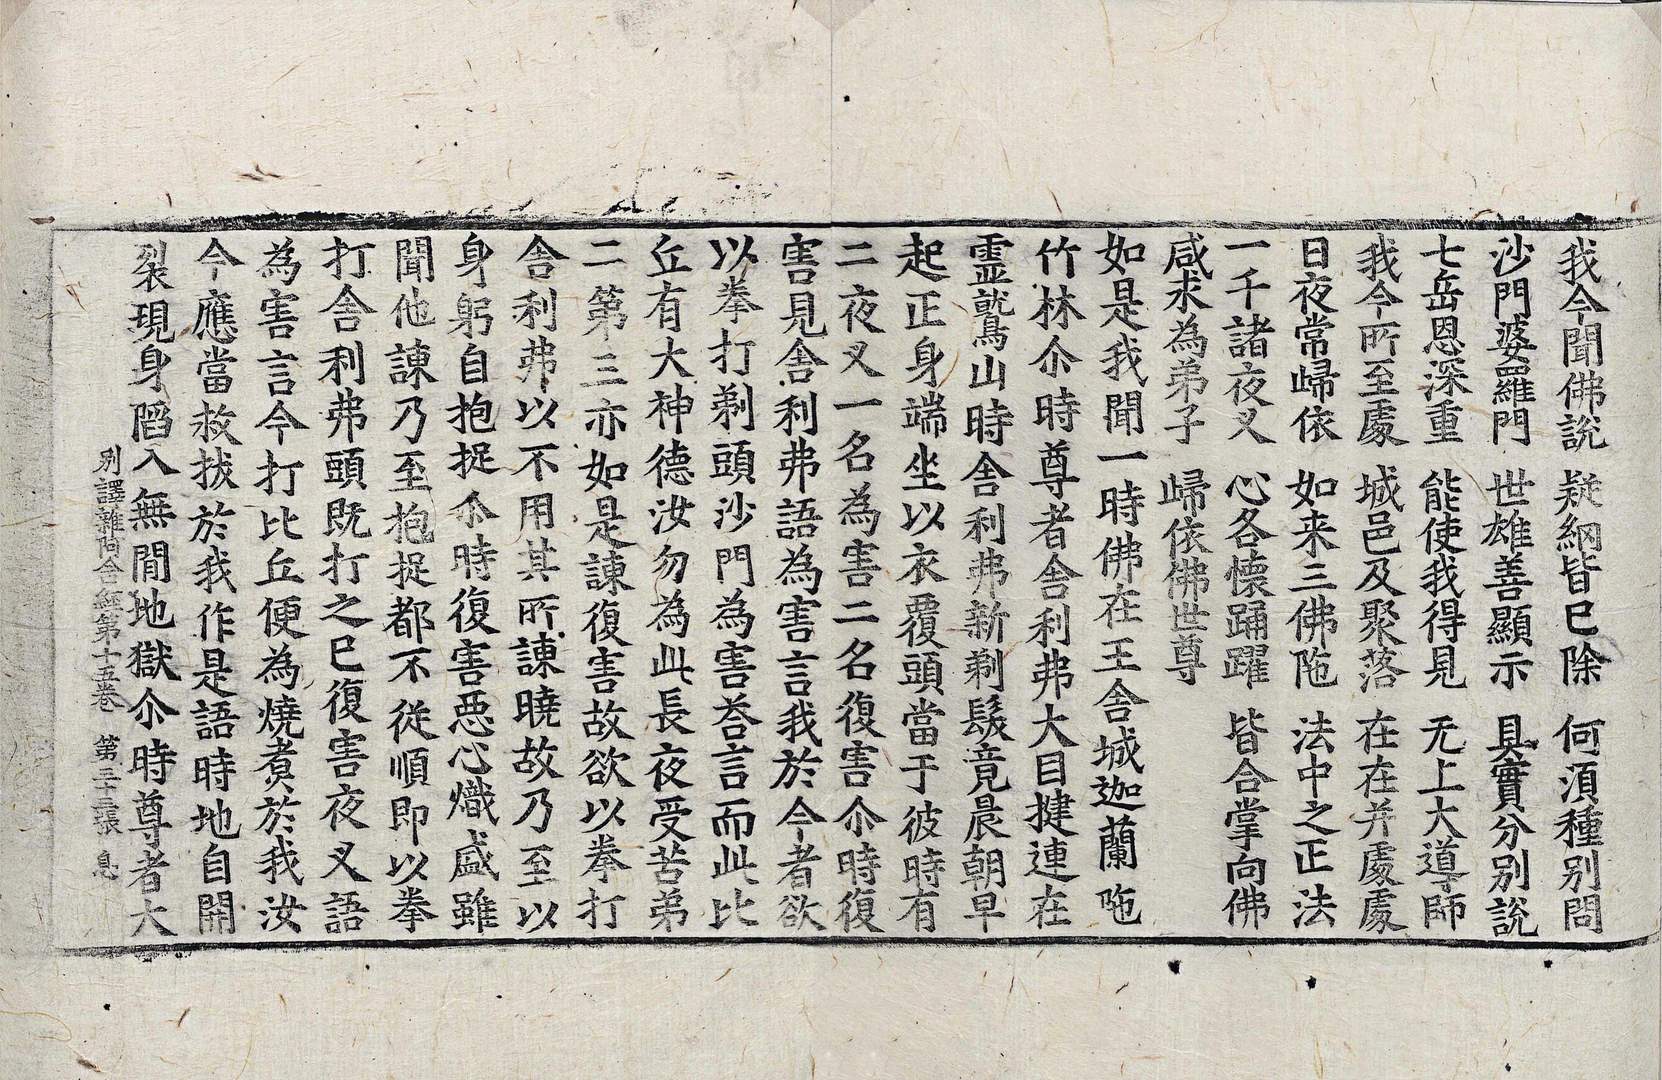 我今聞佛說　疑網皆已除　何湏種别問
沙門婆羅門　世雄善顯示　具實分别說
七岳恩深重　能使我得見　无上大導師
我今所至處　城邑及聚落　在在并處處
日夜常歸依　如来三佛陁　法中之正法
一千諸夜叉　心各懷踊躍　皆合掌向佛
咸求為弟子　歸依佛世尊
如是我聞一時佛在王舍城迦蘭陁
竹林尒時尊者舍利弗大目揵連在
靈鷲山時舍利弗新剃鬚竟晨朝早
起正身端坐以衣覆頭當于彼時有
二夜叉一名為害二名復害尒時復
害見舍利弗語為害言我於今者欲
以拳打剃頭沙門為害荅言而此比
丘有大神德汝勿為此長夜受苦弟
二第三亦如是諫復害故欲以拳打
舍利弗以不用其所諫曉故乃至以
身躬自抱捉尒時復害惡心熾盛雖
聞他諫乃至抱捉都不從順即以拳
打舍利弗頭旣打之已復害夜叉語
為害言今打比丘便為燒煮於我汝
今應當救拔於我作是語時地自開
裂現身䧟入無閒地獄尒時尊者大
别譯雜阿含經第十五卷　第二十二張　息